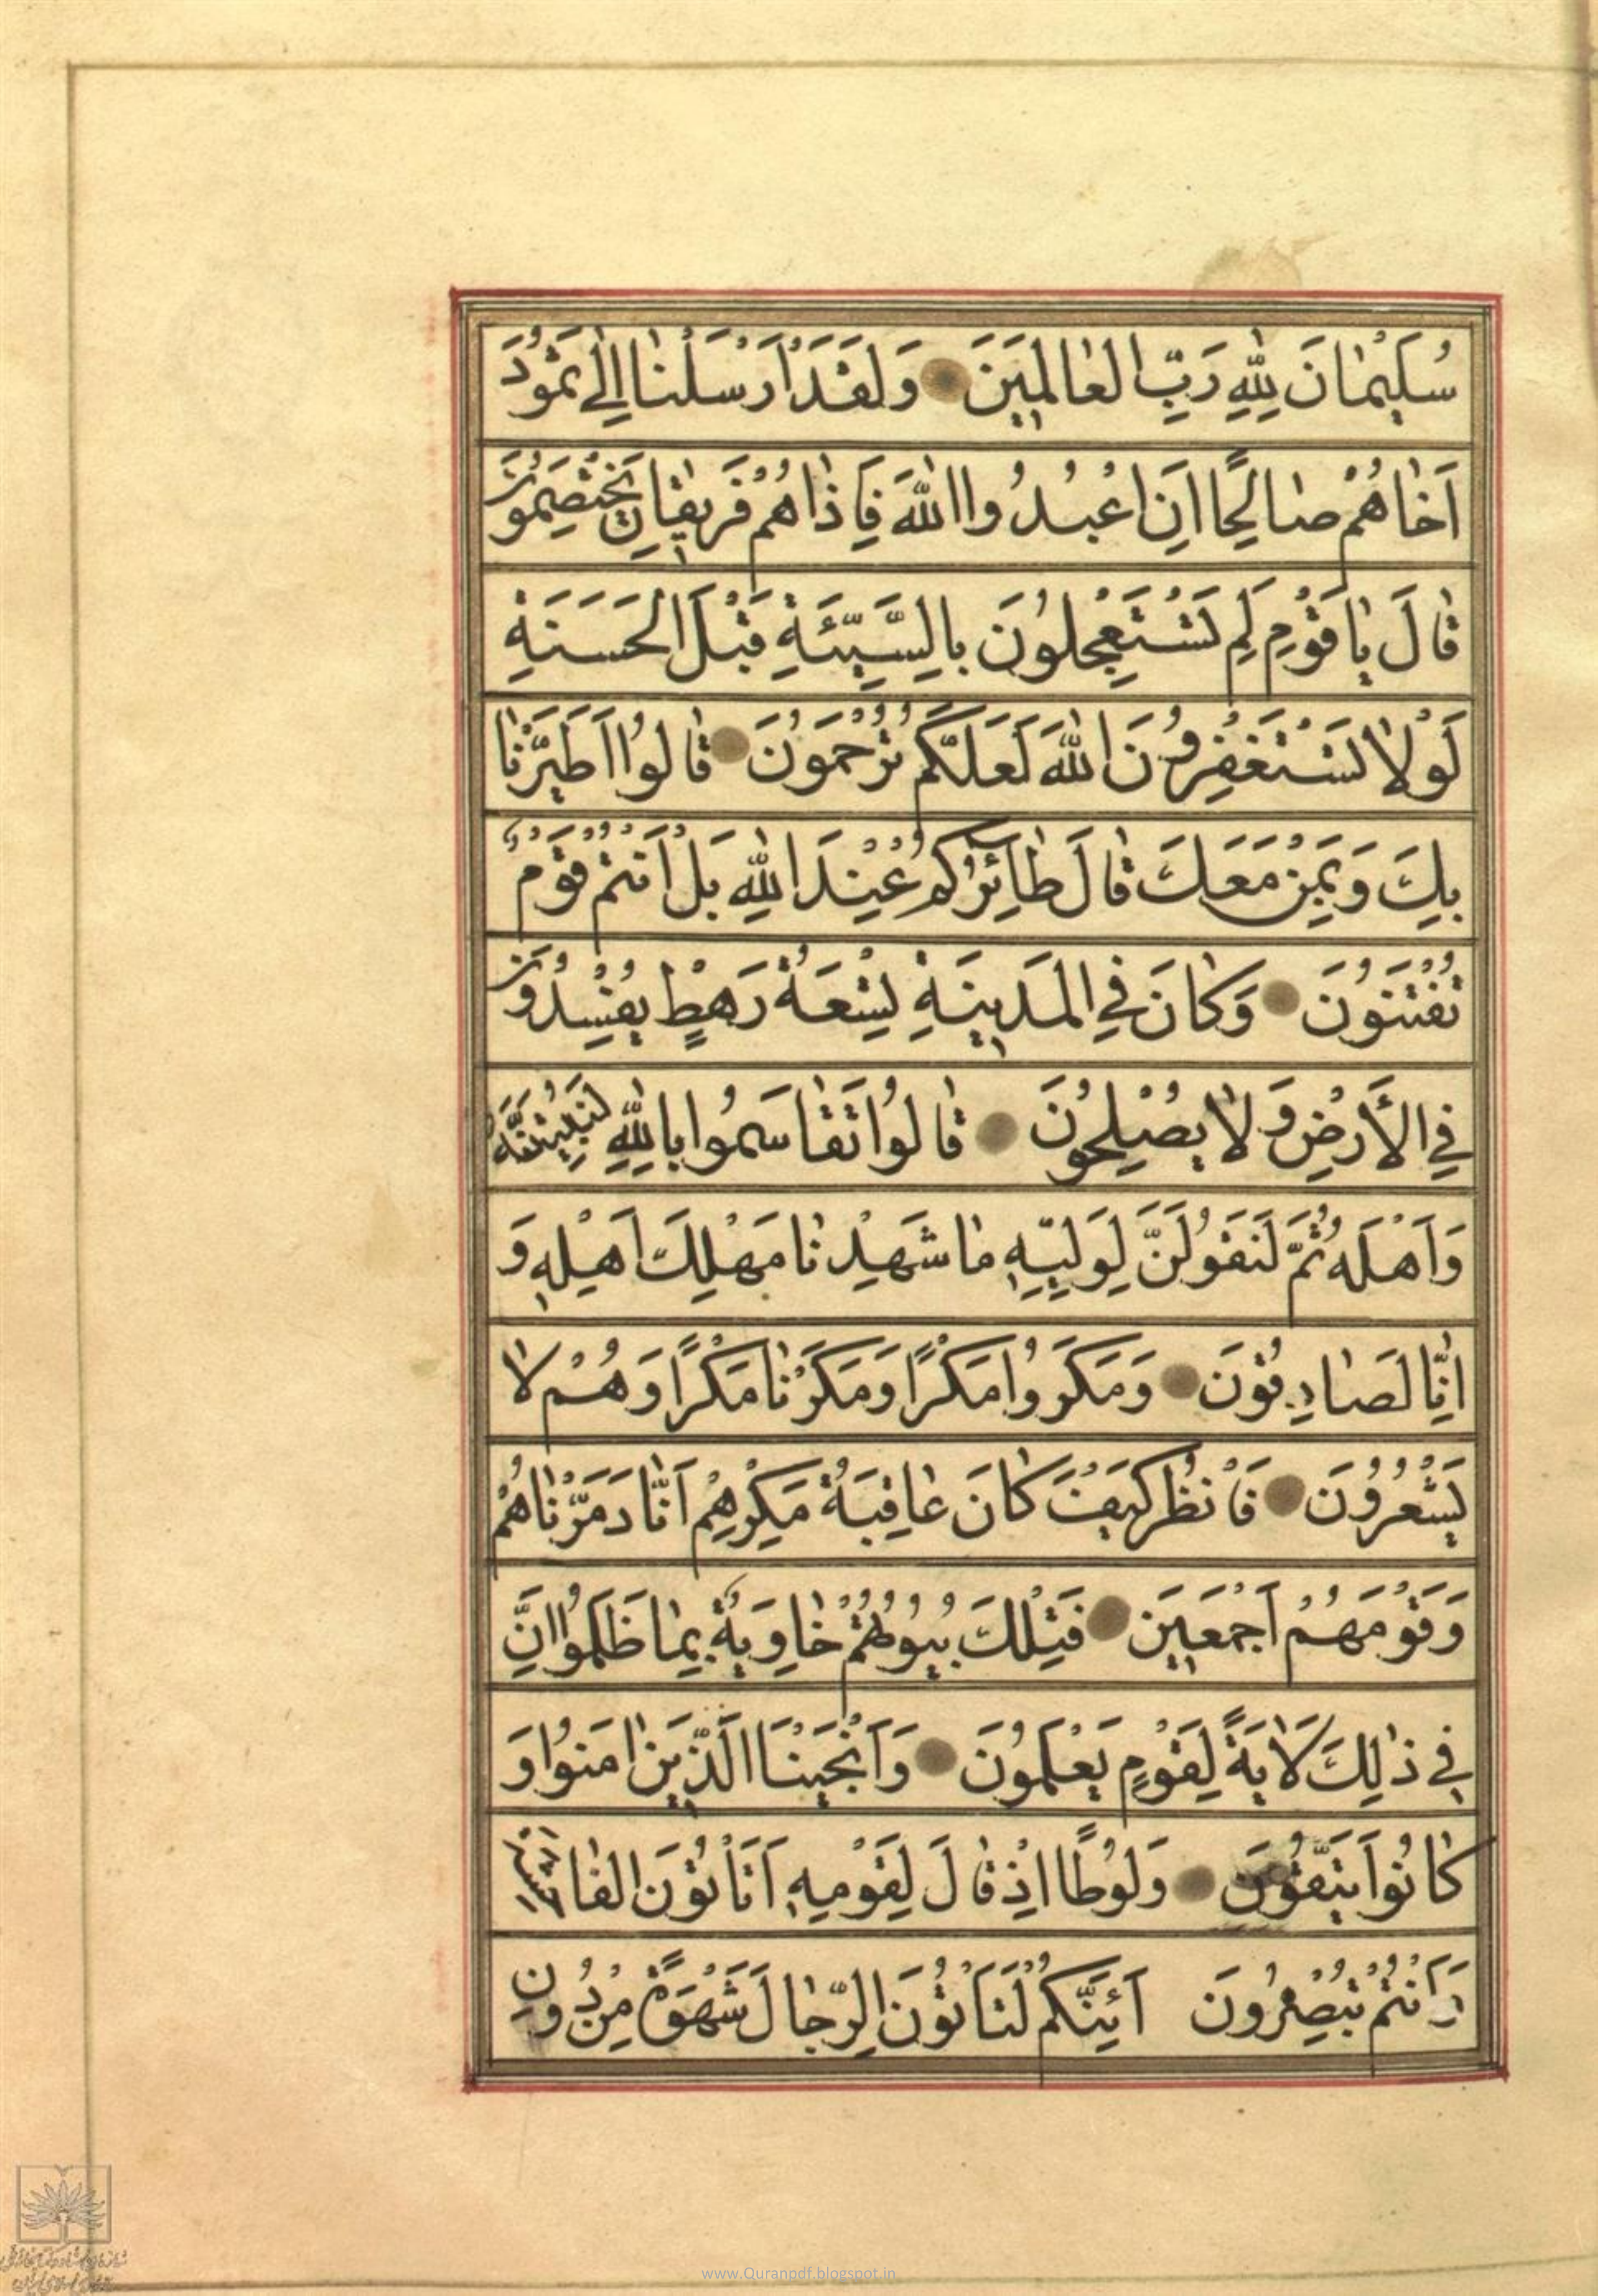 سُلَيْمٰانَ لِلّٰهِ رَبِّ الْعٰالَمِينَ وَلَقَدْ اَرْسَلْنٰا اِلٰى ثَمُودَ
اَخٰاهُمْ صٰالِحًا اَنِ اعْبُدُوا اللّٰهَ فَاِذٰا هُمْ فَرِيقٰانِ يَخْتَصِمُونَ
قٰالَ يٰا قَوْمِ لِمَ تَسْتَعْجِلُونَ بِالسَّيِّئَةِ قَبْلَ الْحَسَنَةِ
لَوْلٰا تَسْتَغْفِرُونَ اللّٰهَ لَعَلَّكُمْ تُرْحَمُونَ قٰالُوا اطَّيَّرْنٰا
بِكَ وَبِمَنْ مَعَكَ قٰالَ طٰائِرُكُمْ عِنْدَ اللّٰهِ بَلْ اَنْتُمْ قَوْمٌ
تُفْتَنُونَ وَكٰانَ فِي الْمَدِينَةِ تِسْعَةُ رَهْطٍ يُفْسِدُونَ
فِي الْأَرْضِ وَ لٰا يُصْلِحُونَ قٰالُوا تَقٰاسَمُوا بِاللّٰهِ لَنُبَيِّتَنَّهُ
وَاَهْلَهُ ثُمَّ لَنَقُولَنَّ لِوَلِيِّهِ مٰا شَهِدْنٰا مَهْلِكَ اَهْلِهِ وَ
اِنّٰا لَصٰادِقُونَ وَمَكَرُوا مَكْرًا وَمَكَرْنٰا مَكْرًا وَهُمْ لٰا
يَشْعُرُونَ فَانْظُرْ كَيْفَ كٰانَ عٰاقِبَةُ مَكْرِهِمْ اَنّٰا دَمَّرْنٰاهُمْ
وَقَوْمَهُمْ اَجْمَعِينَ فَتِلْكَ بُيُوتُهُمْ خٰاوِيَةً بِمٰا ظَلَمُوا اِنَّ
فِي ذٰلِكَ لَاٰيَةً لِقَوْمٍ يَعْلَمُونَ وَاَنْجَيْنَا الَّذِينَ اٰمَنُوا وَ
كٰانُوا يَتَّقُونَ وَلُوطًا اِذْ قٰالَ لِقَوْمِهِ اَتَأْتُونَ الْفٰاحِشَةَ
وَاَنْتُمْ تُبْصِرُونَ اَئِنَّكُمْ لَتَأْتُونَ الرِّجٰالَ شَهْوَةً مِنْ دُونِ
www.Quranpdf.blogspot.in